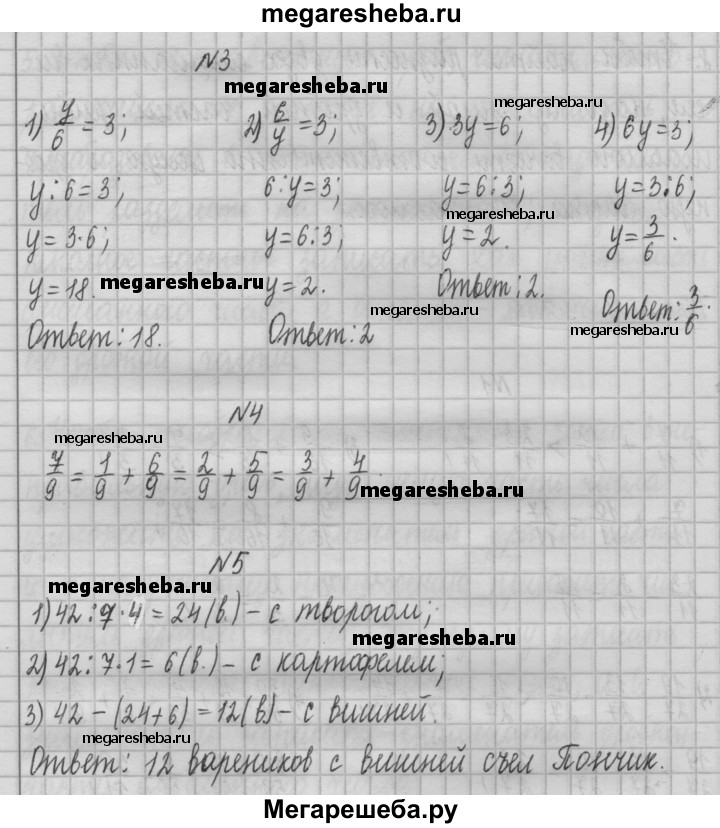 megaresheba.ru
N3
megaresheba.ru
megaresheba.ru
1) y/6 = 3; 2) 6/y = 3; 3) 3y = 6; 4) 6y = 3;
y : 6 = 3; 6 : y = 3; y = 6 : 3; y = 3 : 6;
megaresheba.ru
y = 3 · 6; y = 6 : 3; y = 2. y = 3/6.
y = 18. megaresheba.ru y = 2. Ответ: 2. Ответ: 3/6.
megaresheba.ru
megaresheba.ru
Ответ: 18. Ответ: 2
N4
megaresheba.ru
7/9 = 1/9 + 6/9 = 2/9 + 5/9 = 3/9 + 4/9.
megaresheba.ru
N5
megaresheba.ru
1) 42 : 7 · 4 = 24 (в.) – с творогом;
megaresheba.ru
2) 42 : 7 · 1 = 6 (в.) – с картофелем;
megaresheba.ru
3) 42 – (24 + 6) = 12 (в) – с вишней.
megaresheba.ru
Ответ: 12 вареников с вишней съел Пончик.
Мегарешеба.ру